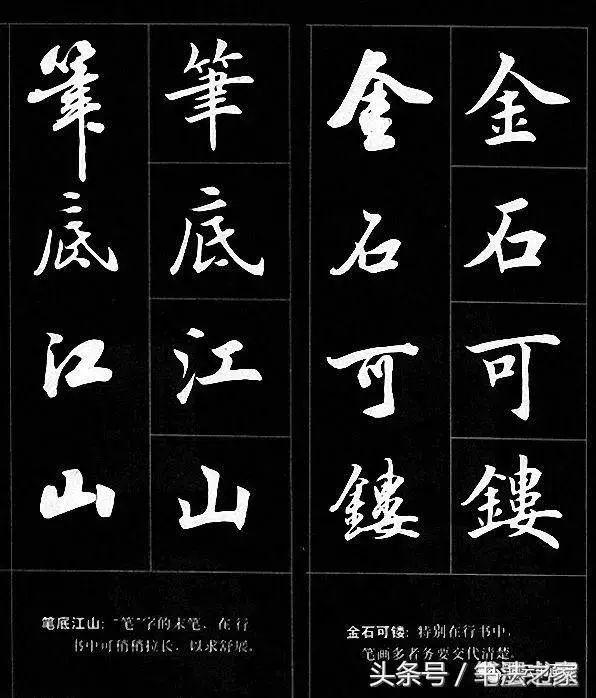 金石可鏤
金石可鏤
金石可镂：特别在行书中，
笔画多者务要交代清楚。
筆底江山
筆底江山
笔底江山：“笔”字的末笔，在行
书中可稍稍拉长，以求舒展。
头条号／笔法之家